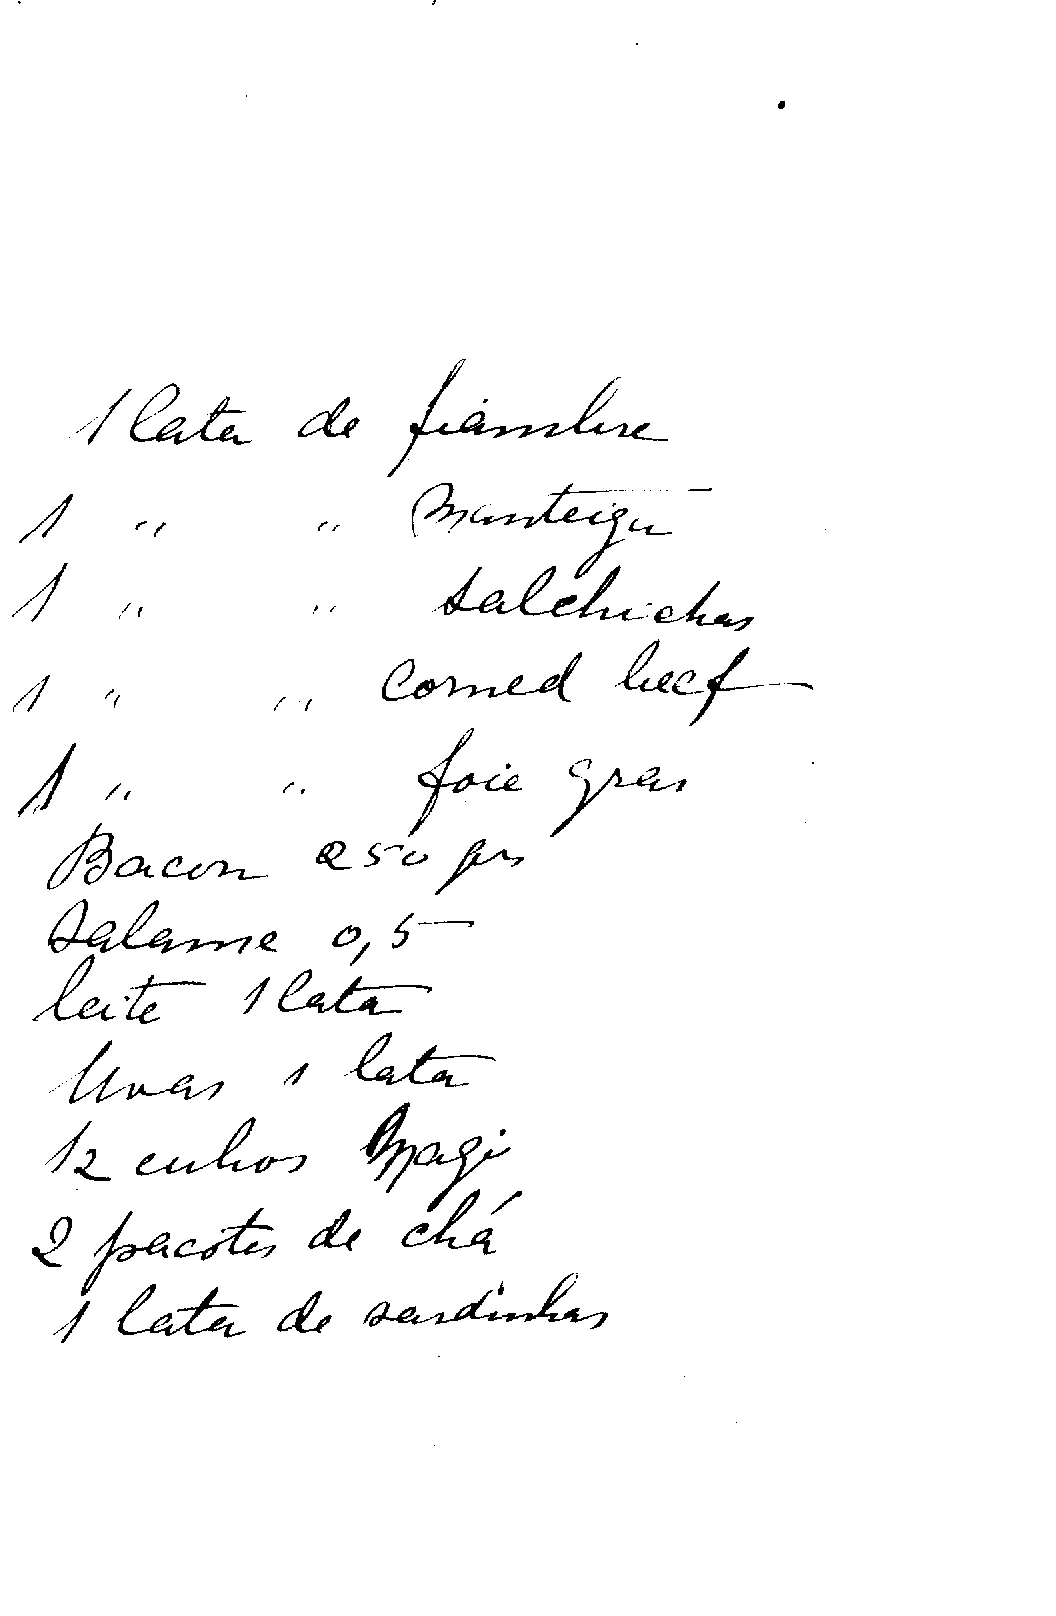 1 lata de fiambre
1 " " manteiga
1 " " salchichas
1 " " corned beef
1 " " foie gras
Bacon 250 grs
salame 0,5
leite 1 lata
Uvas 1 lata
12 cubos Magi
2 pacotes de chá
1 lata de sardinhas